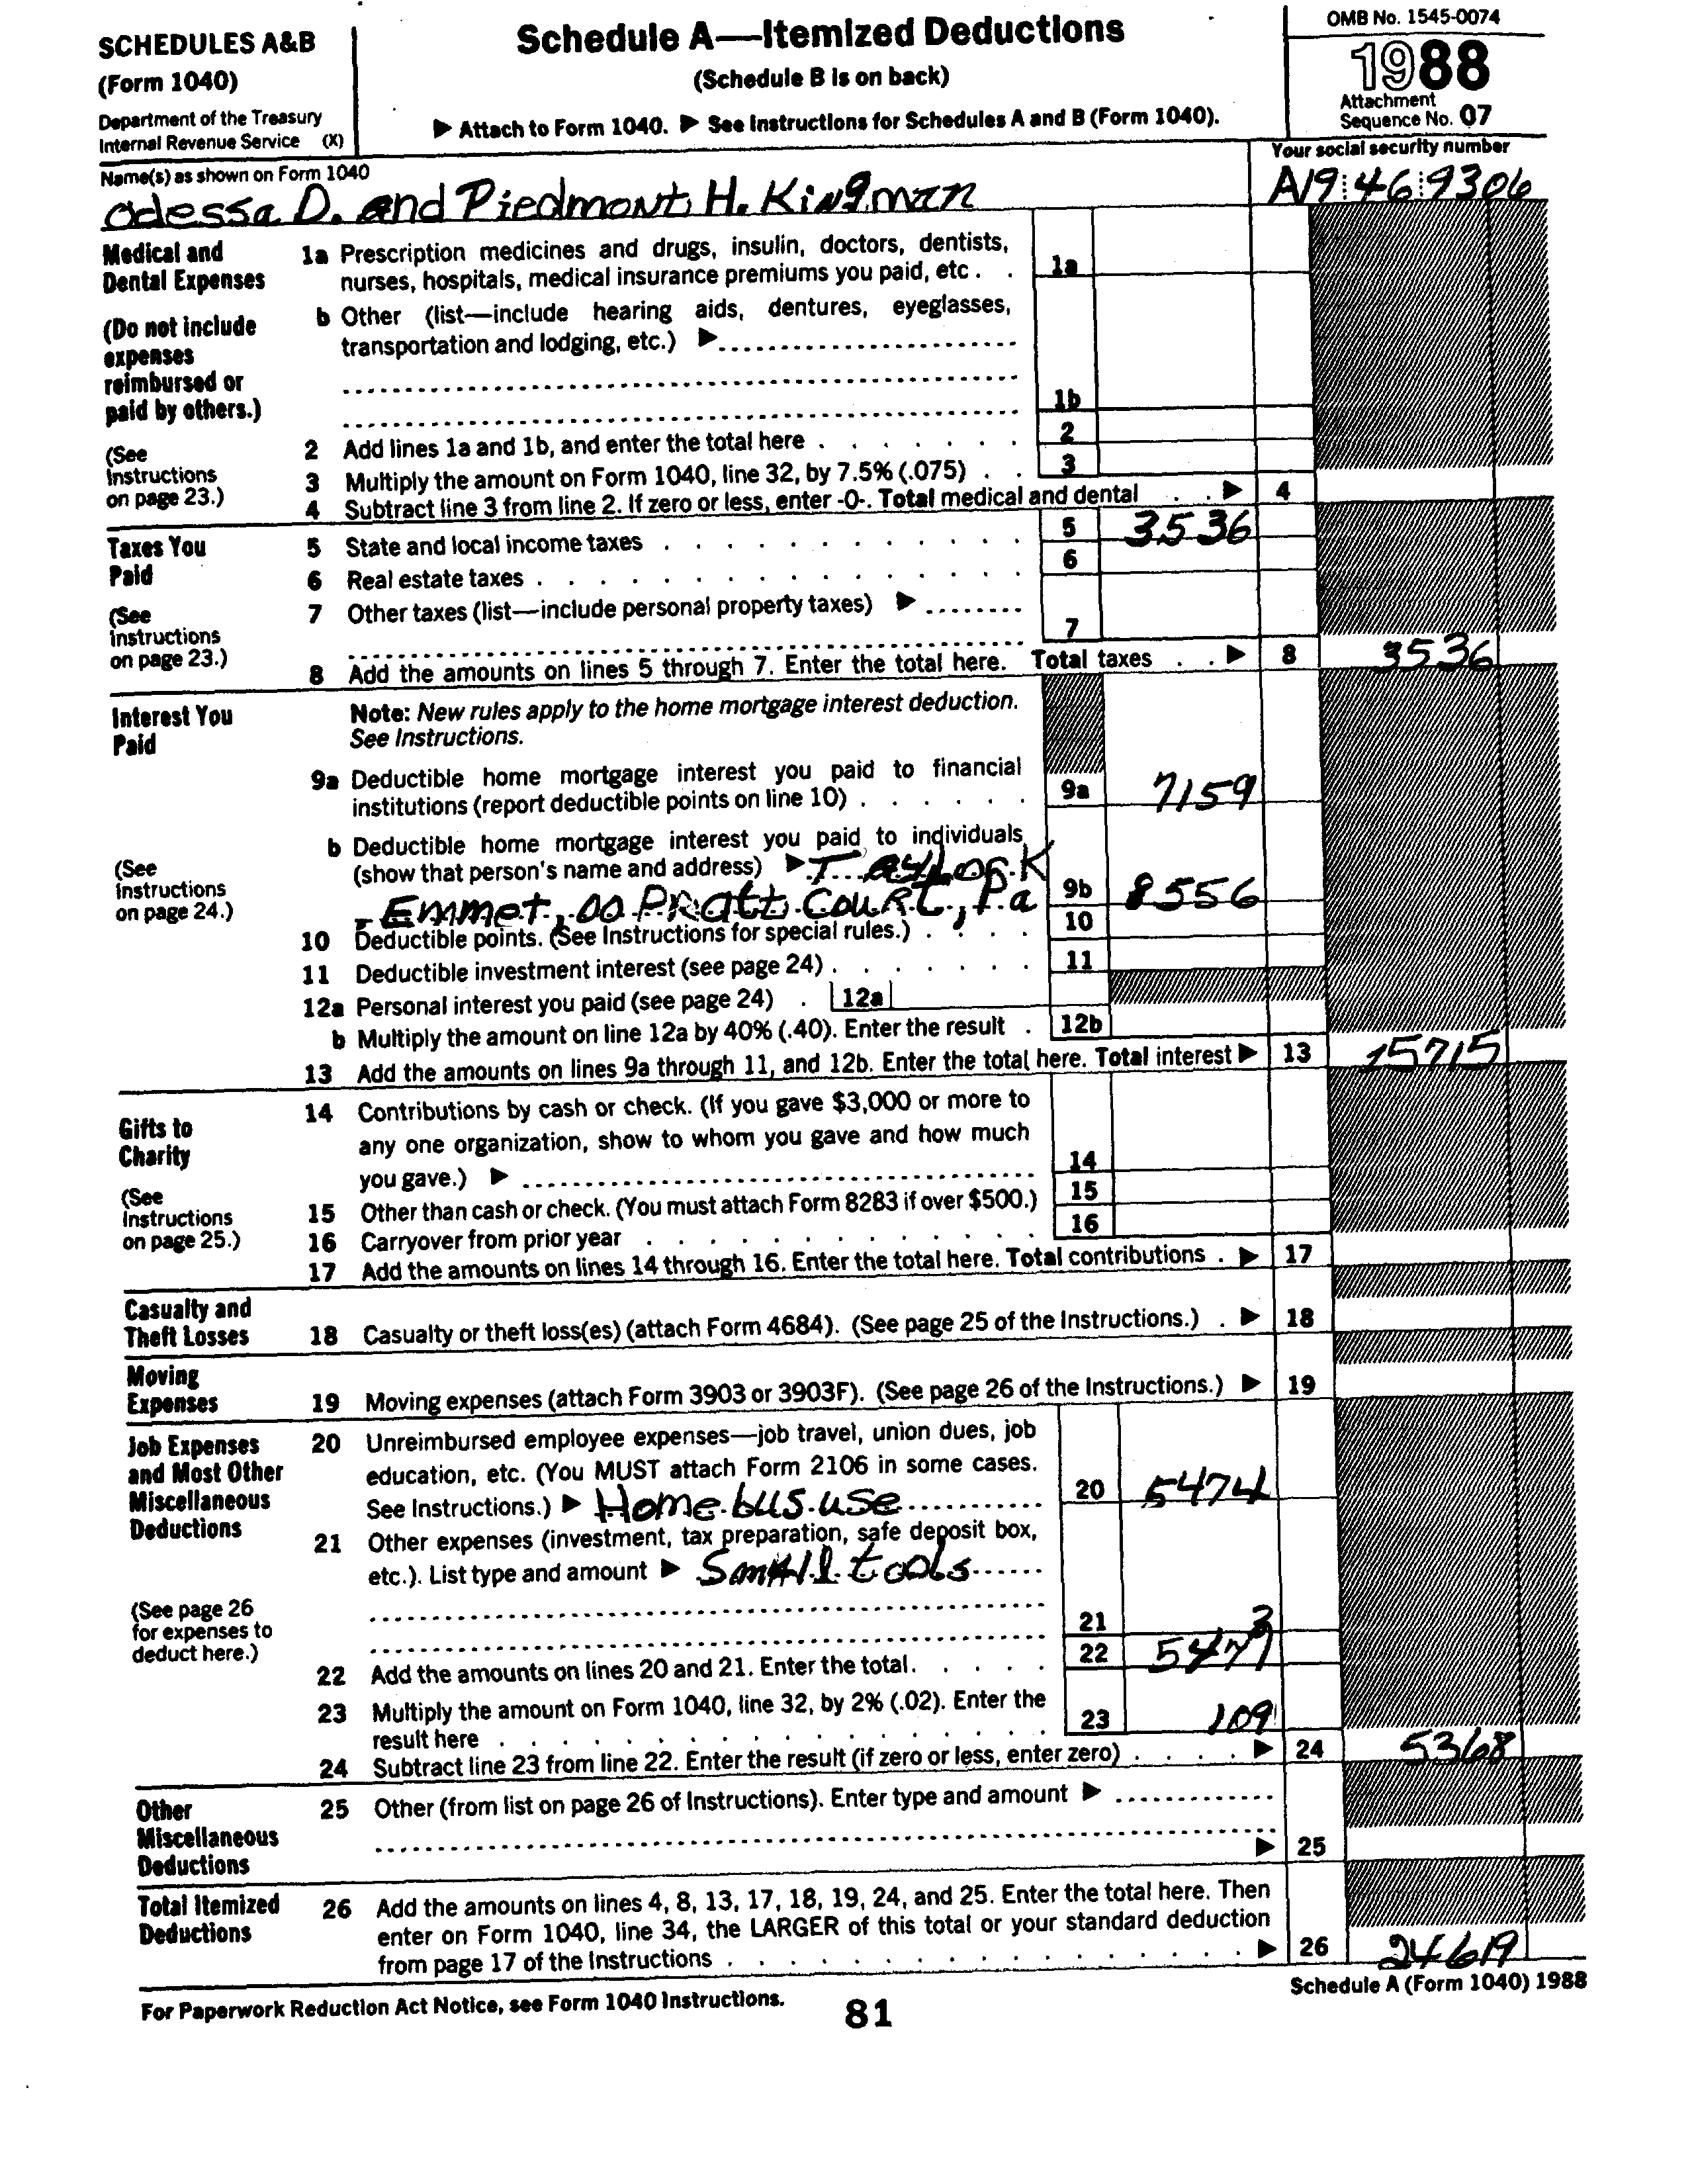 SCHEDULES A&B
(Form 1040)
Department of the Treasury
Internal Revenue Service (X)
Schedule A—Itemized Deductions
(Schedule B is on back)
▶ Attach to Form 1040. ▶ See Instructions for Schedules A and B (Form 1040).
OMB No. 1545-0074
1988
Attachment
Sequence No. 07
Name(s) as shown on Form 1040
Odessa D. and Piedmont H. Kingman
Your social security number
A19 46 9306
Medical and
Dental Expenses
(Do not include
expenses
reimbursed or
paid by others.)
(See
Instructions
on page 23.)
1a Prescription medicines and drugs, insulin, doctors, dentists,
nurses, hospitals, medical insurance premiums you paid, etc . . 1a
b Other (list—include hearing aids, dentures, eyeglasses,
transportation and lodging, etc.) ▶
1b
2 Add lines 1a and 1b, and enter the total here . . . . . . . 2
3 Multiply the amount on Form 1040, line 32, by 7.5% (.075) . . 3
4 Subtract line 3 from line 2. If zero or less, enter -0-. Total medical and dental . . ▶ 4
Taxes You
Paid
(See
Instructions
on page 23.)
5 State and local income taxes . . . . . . . . . . . . 5 3536
6 Real estate taxes . . . . . . . . . . . . . . . . 6
7 Other taxes (list—include personal property taxes) ▶
7
8 Add the amounts on lines 5 through 7. Enter the total here. Total taxes . . ▶ 8 3536
Interest You
Paid
(See
Instructions
on page 24.)
Note: New rules apply to the home mortgage interest deduction.
See Instructions.
9a Deductible home mortgage interest you paid to financial
institutions (report deductible points on line 10) . . . . . . 9a 7159
b Deductible home mortgage interest you paid to individuals
(show that person's name and address) ▶ Taylor K
Emmet, 00 Pratt Court, Pa 9b 8556
10 Deductible points. (See Instructions for special rules.) . . . . 10
11 Deductible investment interest (see page 24) . . . . . . . 11
12a Personal interest you paid (see page 24) . 12a
b Multiply the amount on line 12a by 40% (.40). Enter the result . 12b
13 Add the amounts on lines 9a through 11, and 12b. Enter the total here. Total interest ▶ 13 15715
Gifts to
Charity
(See
Instructions
on page 25.)
14 Contributions by cash or check. (If you gave $3,000 or more to
any one organization, show to whom you gave and how much
you gave.) ▶ 14
15 Other than cash or check. (You must attach Form 8283 if over $500.) 15
16 Carryover from prior year . . . . . . . . . . . . . 16
17 Add the amounts on lines 14 through 16. Enter the total here. Total contributions . ▶ 17
Casualty and
Theft Losses
18 Casualty or theft loss(es) (attach Form 4684). (See page 25 of the Instructions.) . ▶ 18
Moving
Expenses
19 Moving expenses (attach Form 3903 or 3903F). (See page 26 of the Instructions.) ▶ 19
Job Expenses
and Most Other
Miscellaneous
Deductions
(See page 26
for expenses to
deduct here.)
20 Unreimbursed employee expenses—job travel, union dues, job
education, etc. (You MUST attach Form 2106 in some cases.
See Instructions.) ▶ Home bus use 20 5474
21 Other expenses (investment, tax preparation, safe deposit box,
etc.). List type and amount ▶ Small tools
21 3
22 Add the amounts on lines 20 and 21. Enter the total. . . . . 22 5477
23 Multiply the amount on Form 1040, line 32, by 2% (.02). Enter the
result here . . . . . . . . . . . . . . . . . . 23 109
24 Subtract line 23 from line 22. Enter the result (if zero or less, enter zero) . . . . ▶ 24 5368
Other
Miscellaneous
Deductions
25 Other (from list on page 26 of Instructions). Enter type and amount ▶
▶ 25
Total Itemized
Deductions
26 Add the amounts on lines 4, 8, 13, 17, 18, 19, 24, and 25. Enter the total here. Then
enter on Form 1040, line 34, the LARGER of this total or your standard deduction
from page 17 of the Instructions . . . . . . . . . . . . . . . . ▶ 26 24619
For Paperwork Reduction Act Notice, see Form 1040 Instructions.
81
Schedule A (Form 1040) 1988